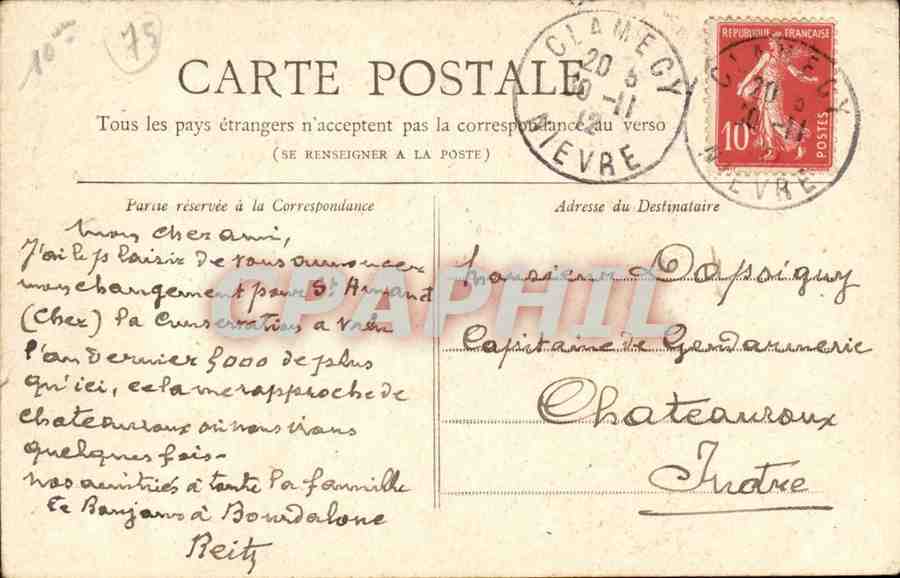 10
75
CARTE POSTALE
Tous les pays étrangers n'acceptent pas la correspondance au verso
(SE RENSEIGNER A LA POSTE)
CLAMECY
20 5
10 -11
12
NIEVRE
REPUBLIQUE FRANÇAISE
10
POSTES
CLAMECY
NIEVRE
Partie réservée à la Correspondance
Mon cher ami,
J'ai le plaisir de vous annoncer
mon changement pour St Amand
(Cher) la Conservation a valu
l'an dernier 5000 de plus
qu'ici, cela me rapproche de
Chateauroux où nous irons
quelques fois -
nos amitiés à toute la famille
Le Bonjour à Bourdalone
Reitz
Adresse du Destinataire
Monsieur Dapoiguy
Capitaine de Gendarmerie
Chateauroux
Indre
CPAPHIL